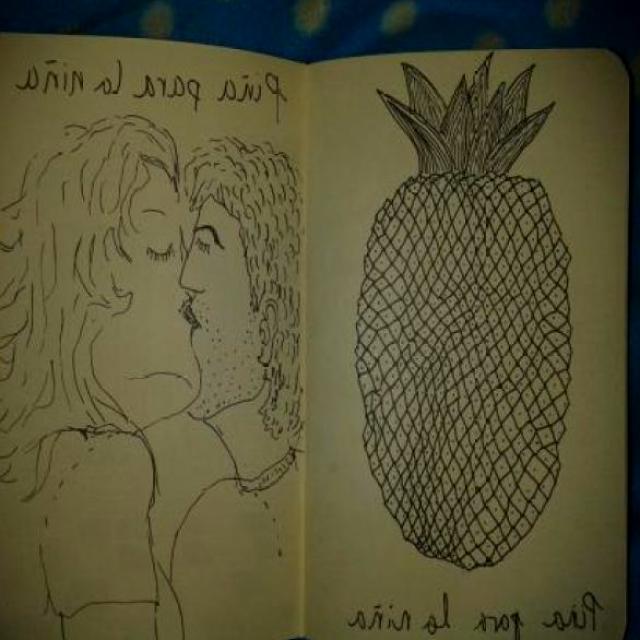 Piña para la niña
Piña para la niña